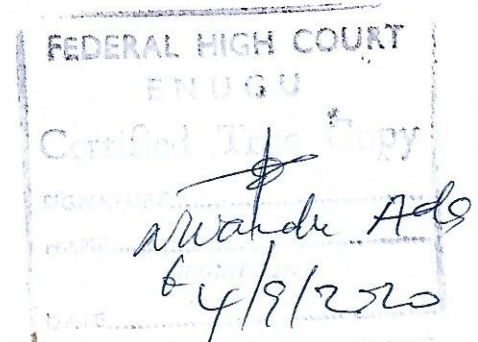 FEDERAL HIGH COURT
ENUGU
Certified True Copy
SIGNATURE
NAME
4/9/2020
DATE